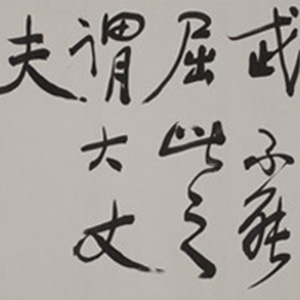 武不能
屈此之
谓大丈
夫